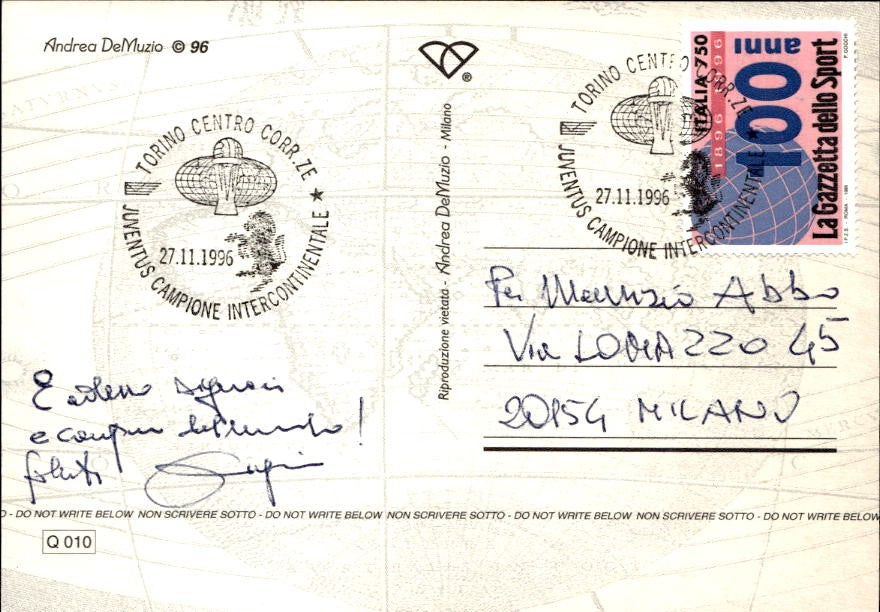 Andrea DeMuzio © 96
®
TORINO CENTRO CORR.ZE
27.11.1996
JUVENTUS CAMPIONE INTERCONTINENTALE ★
TORINO CENTRO CORR.ZE
27.11.1996
JUVENTUS CAMPIONE INTERCONTINENTALE ★
ITALIA 750
1896 1996
100
anni
La Gazzetta dello Sport
I.P.Z.S. - ROMA - 1996
Riproduzione vietata - Andrea DeMuzio - Milano
Per Maurizio Abbo
Via LOMAZZO 45
20154 MILANO
E adesso signori
e campioni del mondo!
Saluti
- DO NOT WRITE BELOW NON SCRIVERE SOTTO - DO NOT WRITE BELOW NON SCRIVERE SOTTO - DO NOT WRITE BELOW NON SCRIVERE SOTTO - DO NOT WRITE BELOW
Q 010